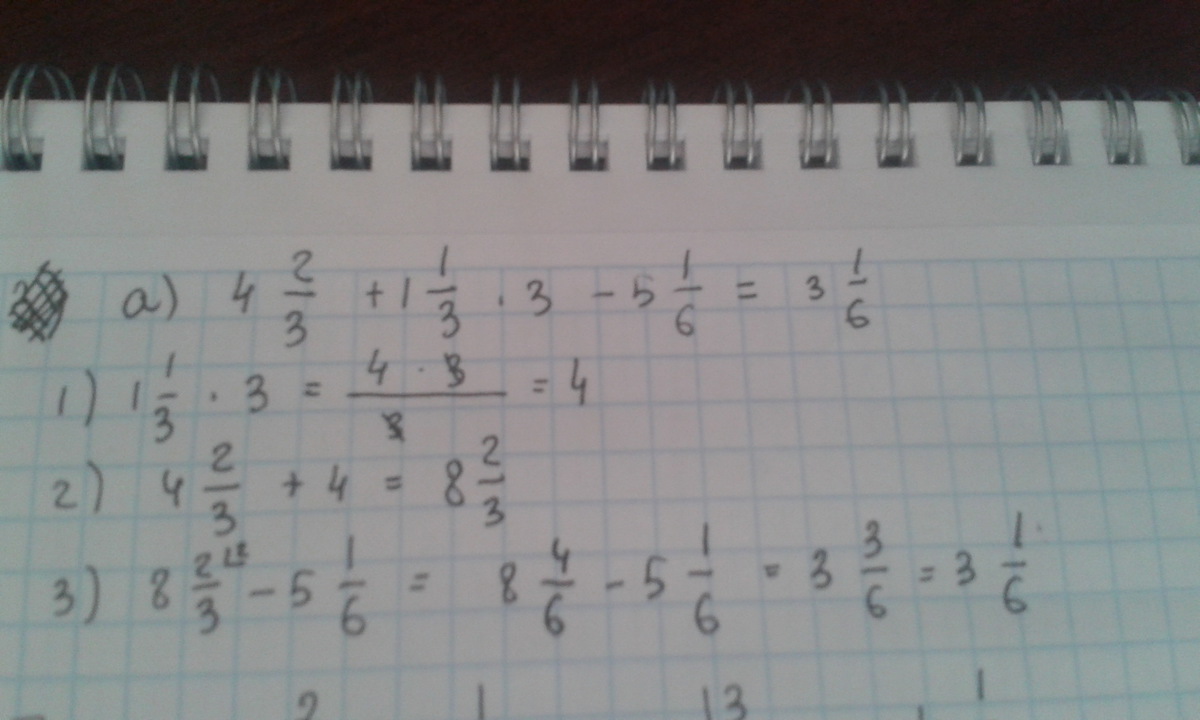 а) 4 2/3 + 1 1/3 · 3 - 5 1/6 = 3 1/6
1) 1 1/3 · 3 = (4 · 3)/3 = 4
2) 4 2/3 + 4 = 8 2/3
3) 8 2/3 - 5 1/6 = 8 4/6 - 5 1/6 = 3 3/6 = 3 1/6
2 1 13 1